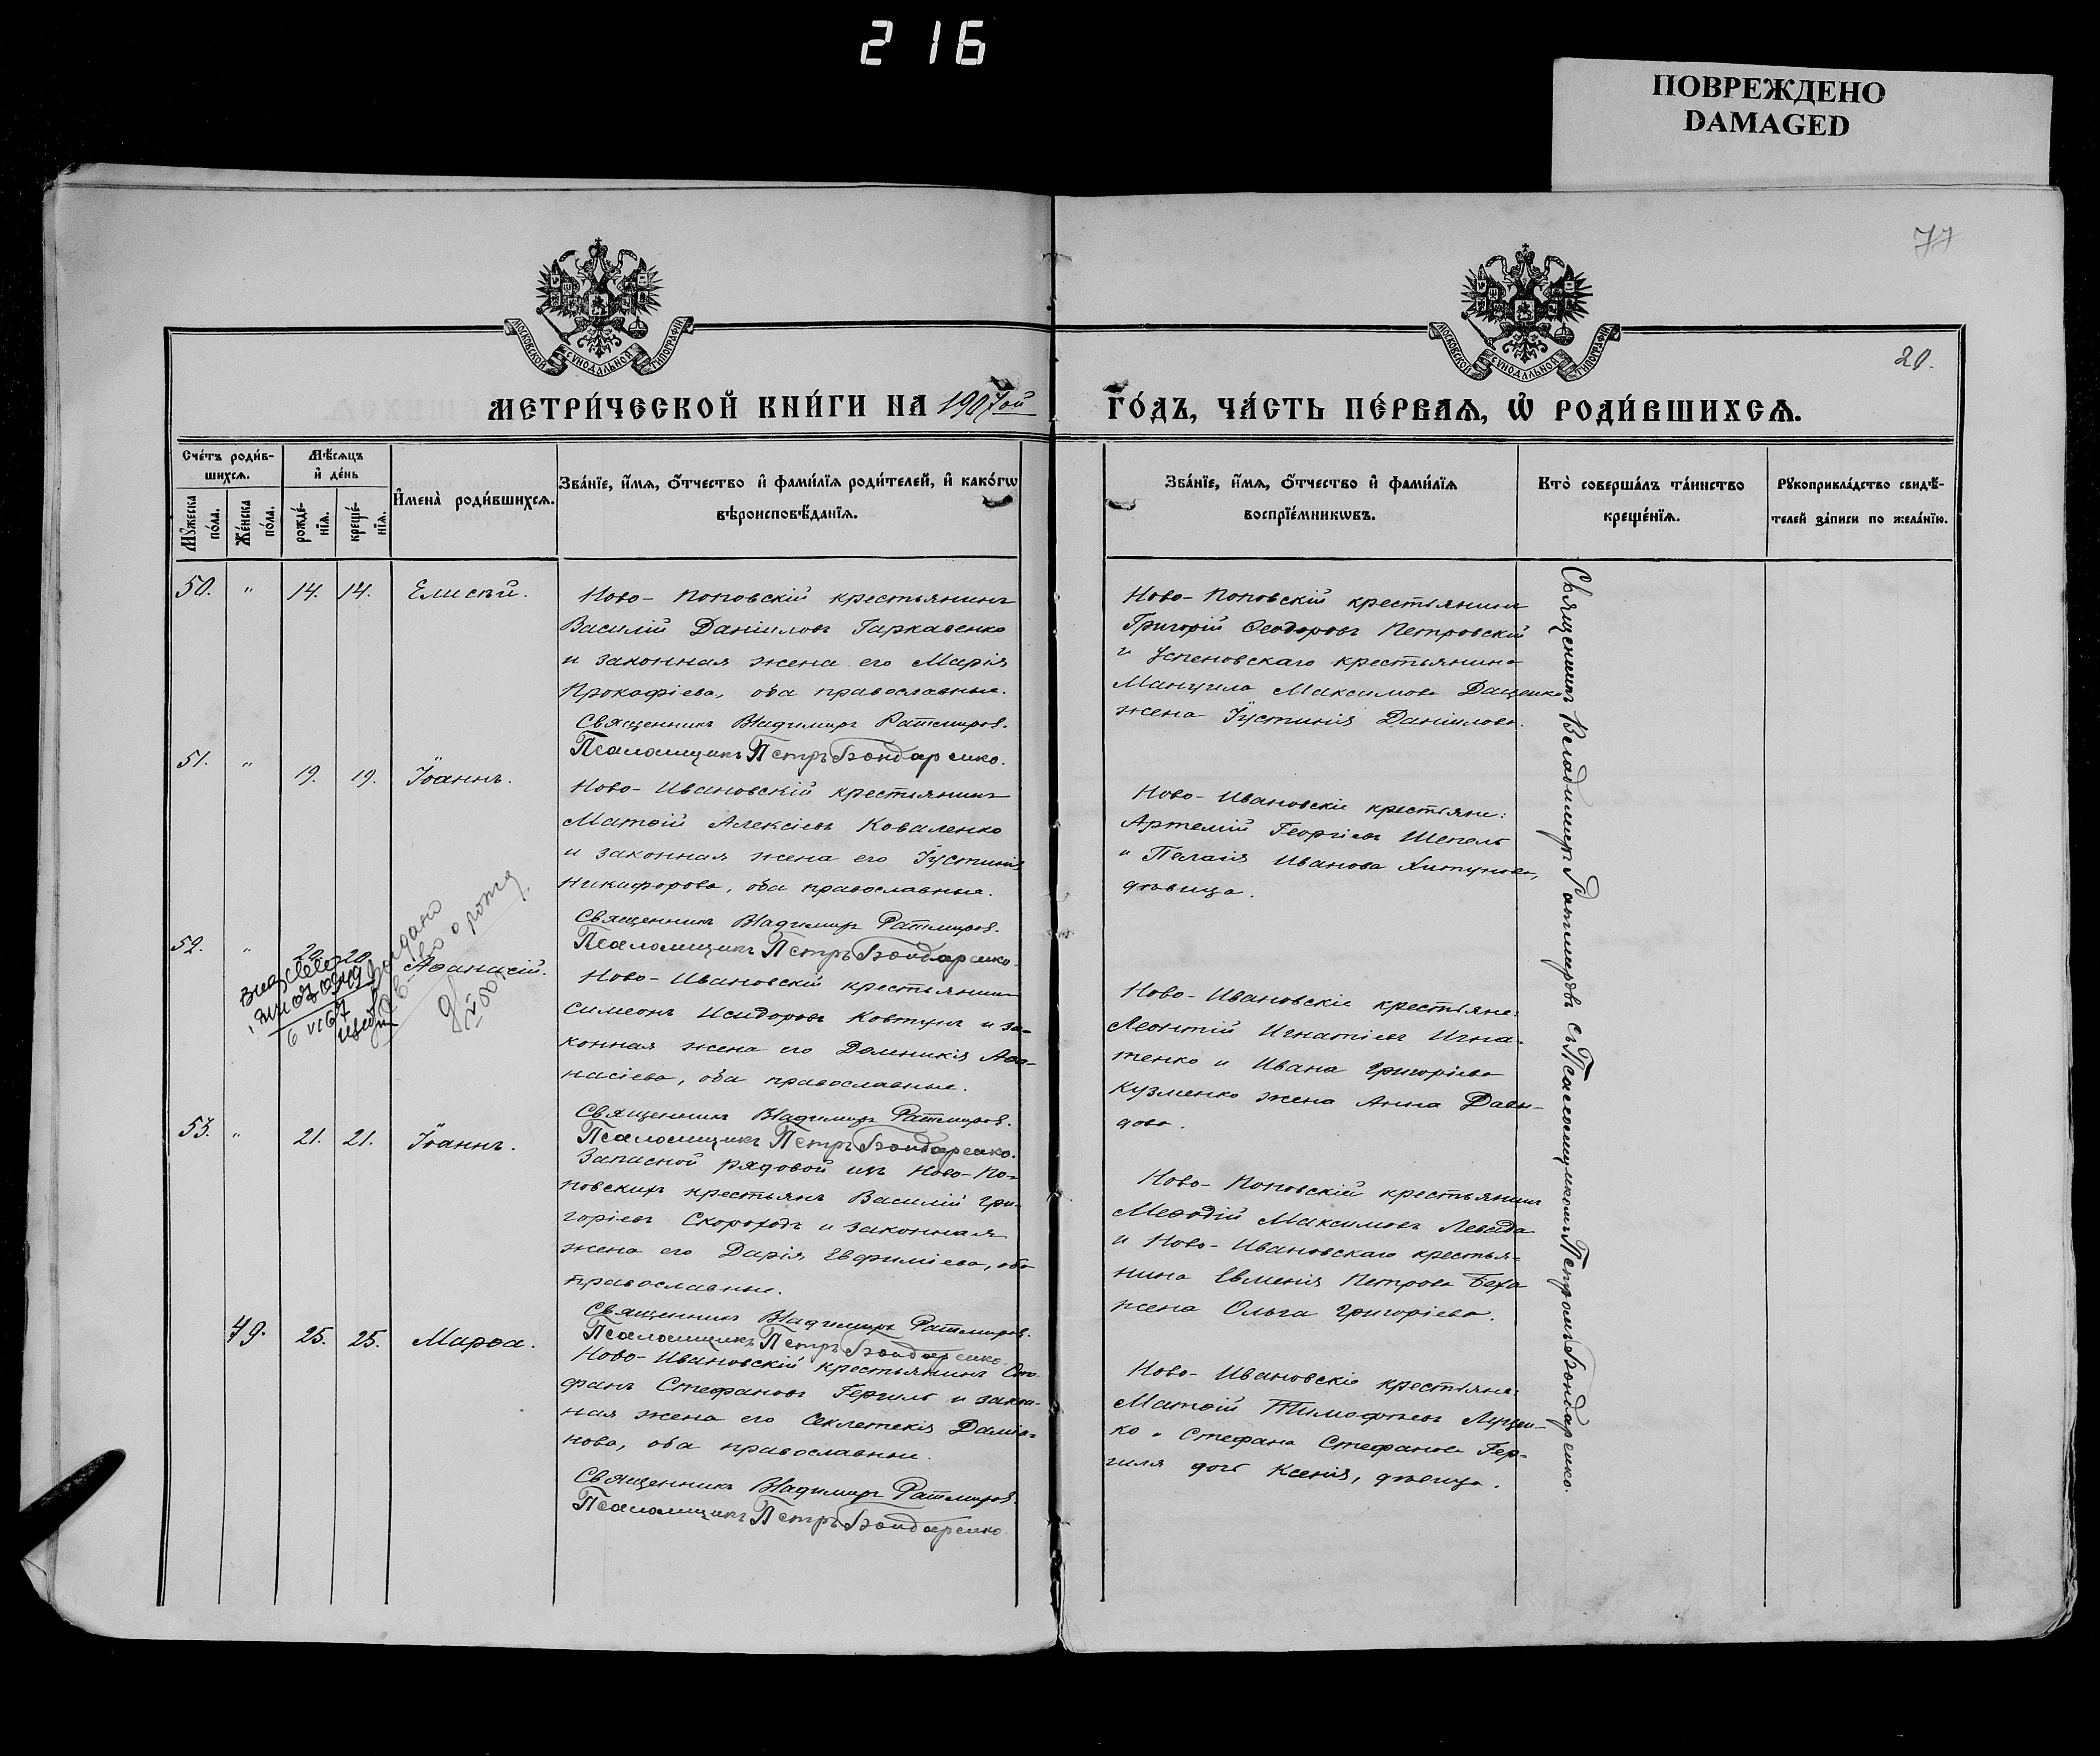 216
ПОВРЕЖДЕНО
DAMAGED
77
МОСКОВСКОЙ СѴНОДАЛЬНОЙ ТИПОГРАФІИ
МОСКОВСКОЙ СѴНОДАЛЬНОЙ ТИПОГРАФІИ
20.
МЕТРИ́ЧЕСКОЙ КНИ́ГИ НА 1907ой
ГО́ДЪ, ЧА́СТЬ ПЕ́РВАѦ, Ѡ РОДИ́ВШИХСѦ.
Сче́тъ роди́в-
шихсѧ.
Мꙋ́жеска по́ла.
Же́нска по́ла.
Мѣ́сѧцъ
и де́нь
рожде́-
нїѧ.
креще́-
нїѧ.
И҆мена̀ роди́вшихсѧ.
Зва́нїе, и҆́мѧ, ѻ҆́тчество и҆ фами́лїѧ роди́телей, и҆ како́гѡ
вѣроисповѣ́данїѧ.
Зва́нїе, и҆́мѧ, ѻ҆́тчество и҆ фами́лїѧ
воспрїе́мникѡвъ.
Кто̀ соверша́лъ та́инство
креще́нїѧ.
Рꙋкоприкла́дство свидѣ́-
телей за́писи по жела́нїю.
50. " 14. 14. Елисѣй.
Ново-Поповскій крестьянинъ
Василій Даніиловъ Гаркавенко
и законная жена его Марія
Прокофіева, оба православные.
Священникъ Владимиръ Ратмиров.
Псаломщикъ Петръ Бондаренко.
Ново-Поповскій крестьянинъ
Григорій Ѳеодоровъ Петровскій
и Успеновскаго крестьянина
Мануила Максимова Даценко
жена Іустинія Даніилова.
51. " 19. 19. Іоаннъ.
Ново-Ивановскій крестьянинъ
Матѳій Алексіевъ Коваленко
и законная жена его Іустинія
Никифорова, оба православные.
Священникъ Владимиръ Ратмиров.
Псаломщикъ Петръ Бондаренко.
Ново-Ивановскіе крестьяне:
Артемій Георгіевъ Шепель
и Пелагія Иванова Хитунова,
дѣвица.
52. " 20. 20. Аѳанасій.
выдано
св-во о рожд.
Ново-Ивановскій крестьянинъ
Симеонъ Исидоровъ Ковтунъ и за-
конная жена его Домникія Аѳа-
насіева, оба православные.
Священникъ Владимиръ Ратмиров.
Псаломщикъ Петръ Бондаренко.
Ново-Ивановскіе крестьяне:
Леонтій Игнатіевъ Игна-
тенко и Ивана Григоріева
Кузменко жена Анна Давы-
дова.
53. " 21. 21. Іоаннъ.
Запасной рядовой изъ Ново-По-
повскихъ крестьянъ Василій Гри-
горіевъ Скороходъ и законная
жена его Дарія Евфиміева, оба
православные.
Священникъ Владимиръ Ратмиров.
Псаломщикъ Петръ Бондаренко.
Ново-Поповскій крестьянинъ
Меѳодій Максимовъ Левада
и Ново-Ивановскаго крестья-
нина Евменія Петрова Беха
жена Ольга Григоріева.
49. 25. 25. Марѳа.
Ново-Ивановскій крестьянинъ Сте-
фанъ Стефановъ Гергиль и закон-
ная жена его Секлетекія Даміа-
нова, оба православные.
Священникъ Владимиръ Ратмиров.
Псаломщикъ Петръ Бондаренко.
Ново-Ивановскіе крестьяне:
Матѳій Тимофѣевъ Луцен-
ко и Стефана Стефанова Гер-
гиля дочь Ксенія, дѣвица.
Священникъ Владимиръ Ратмировъ съ Псаломщикомъ Петромъ Бондаренко.